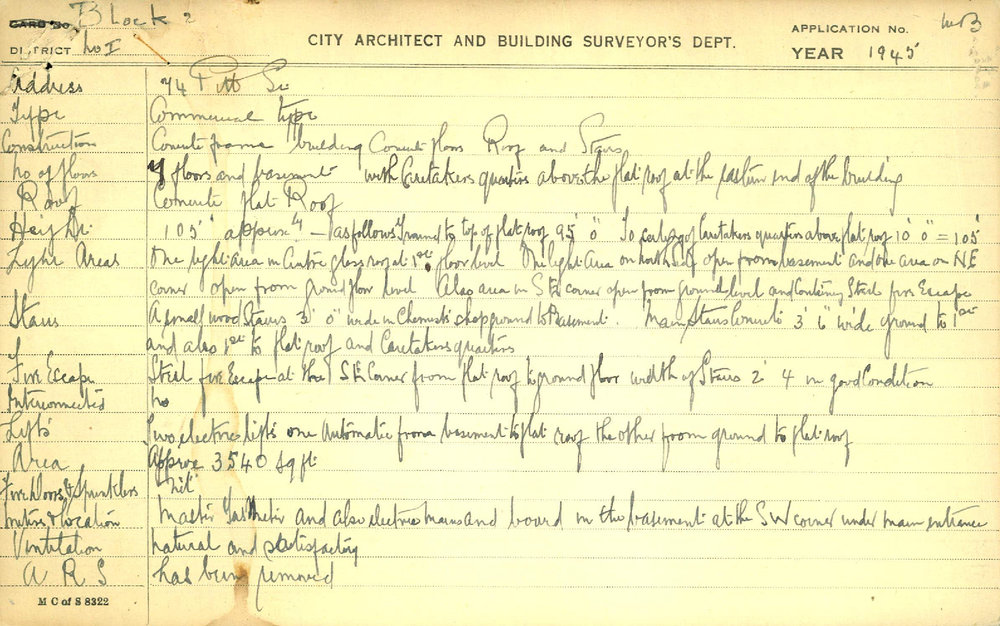 CARD NO. Block 2
DISTRICT No I
CITY ARCHITECT AND BUILDING SURVEYOR'S DEPT.
APPLICATION NO.
YEAR 1945
Address 74 Pitt St
Type Commercial type
Construction Concrete frame building Concrete floors Roof and Stairs
No of floors floors and basement with Caretakers quarters above the flat roof at the eastern end of the building
Roof Concrete flat Roof
Height 105' approx - as follows Ground to top of flat roof 95' 0" To ceiling of Caretakers quarters above flat roof 10' 0" = 105'
Light Areas One light area in Centre glass roof at 1st floor level One light Area on north side open from basement and one area on NE
corner open from ground floor level Also area in SE corner open from ground level and Containing Steel fire Escape
Stairs A small wood Stairs 3' 0" wide in Chemists shop ground to Basement. Main Stairs Concrete 3' 6" wide ground to 1st
and also 1st to flat roof and Caretakers quarters
Fire Escape Steel fire Escape at the SE Corner from flat roof to ground floor width of Stairs 2' 4 in good Condition
Interconnected no
Lifts Two electric lifts one Automatic from basement to flat roof the other from ground to flat roof
Area Approx 3540 sq ft
Fire Doors & Sprinklers nil
Meters & location Master Gas Meter and also electric mains and board in the basement at the SW corner under main entrance
Ventilation natural and satisfactory
A R S has been removed
M C of S 8322